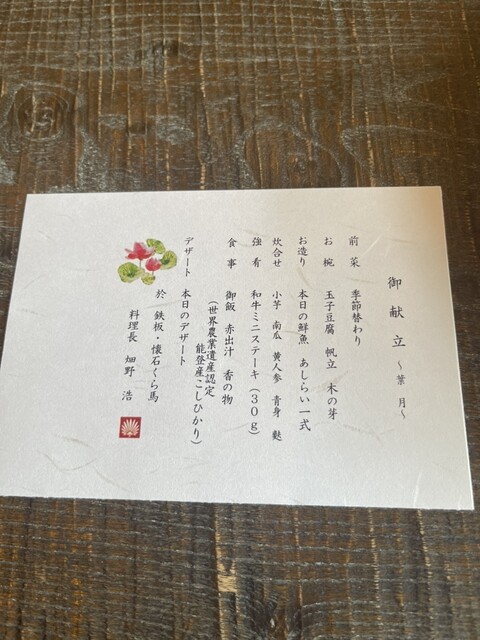 御献立 ～葉月～
前菜 季節替わり
お椀 玉子豆腐 帆立 木の芽
お造り 本日の鮮魚 あしらい一式
炊合せ 小芋 南瓜 黄人参 青身 麩
強肴 和牛ミニステーキ(30g)
食事 御飯 赤出汁 香の物
(世界農業遺産認定
能登産こしひかり)
デザート 本日のデザート
於 鉄板・懐石くら馬
料理長 畑野 浩